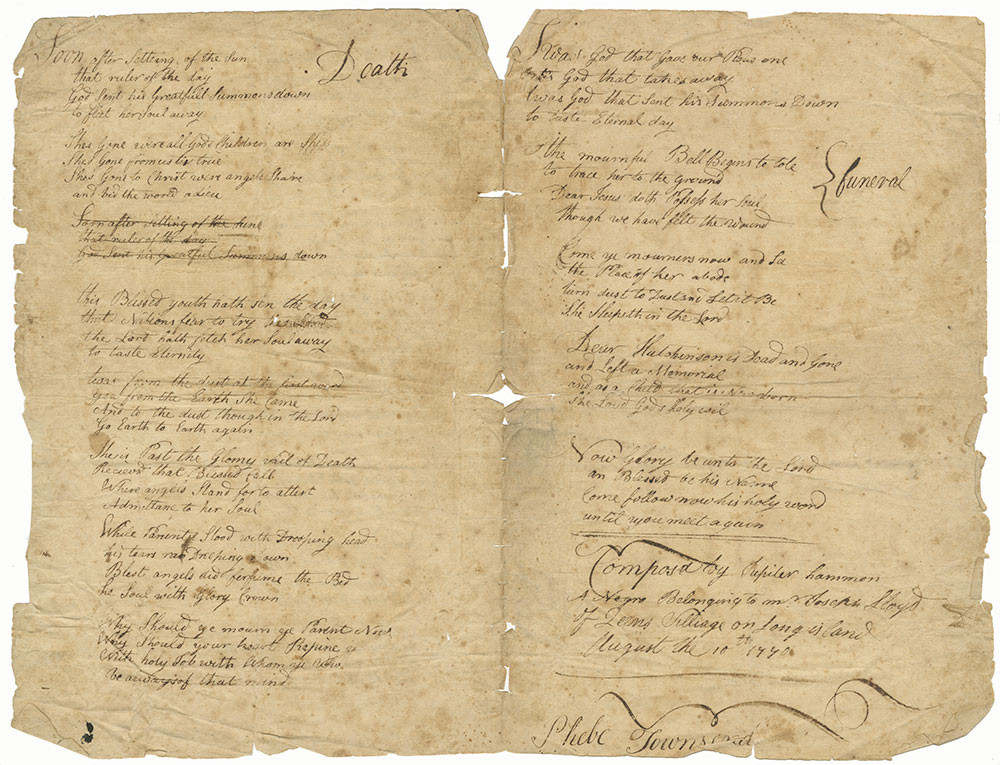 Soon after Setting of the Sun
Death
that ruler of the day
God Sent his Greatfull Summons down
to fleet her soul away
Shes Gone were all Gods Children are
Shes Gone from us tis true
Shes Gone to Christ were angels Share
and bid the world adieu
Soon after Setting of the Sune
that ruler of the day
God Sent his Greatful Summons down
this Blessed youth hath sen the day
that Nations fear to try
the Lord hath fetch her Soul away
to taste Eternity
twas from the dust at the first
yea from the Earth She Came
And to the dust though in the Lord
Go Earth to Earth again
She is Past the Glomy vail of Death
Recievd that Blessed Call
Where angels Stand for to attest
Admittane to her Soul
While Parents Stood with Drooping head
his tears ran Dreeping down
Blest angels did Perfume the Bed
he Soul with Glory Crown
Why Should ye mourn ye Parent Now
Why Should your heart Repine
With holy Job with Whom ye
be aways of that mind
Twas God that Gave our Pious one
God that takes away
Twas God that Sent his Summons Down
to taste Eternal day
the mournful Bell Begins to tole
to trace her to the Ground
Dear Jesus doth Possess her Soul
though we have felt the Wound
funeral
Come ye mourners now and See
the Place of her abode
turn dust to Dust and Let it Be
She Sleepeth in the Lord
Dear Hutchinson is Dead and Gone
and Left a Memorial
and as a Child that is New born
She Lovd Gods holy wil
Now Glory be unto the Lord
an Blessed be his Name
Come follow now his holy word
until you meet again
Composd by Jupiter hammon
A Negro Belonging to mr Joseph Lloyd
of Qeens Villiage on Long island
August the 10th 1770
Phebe Townsend